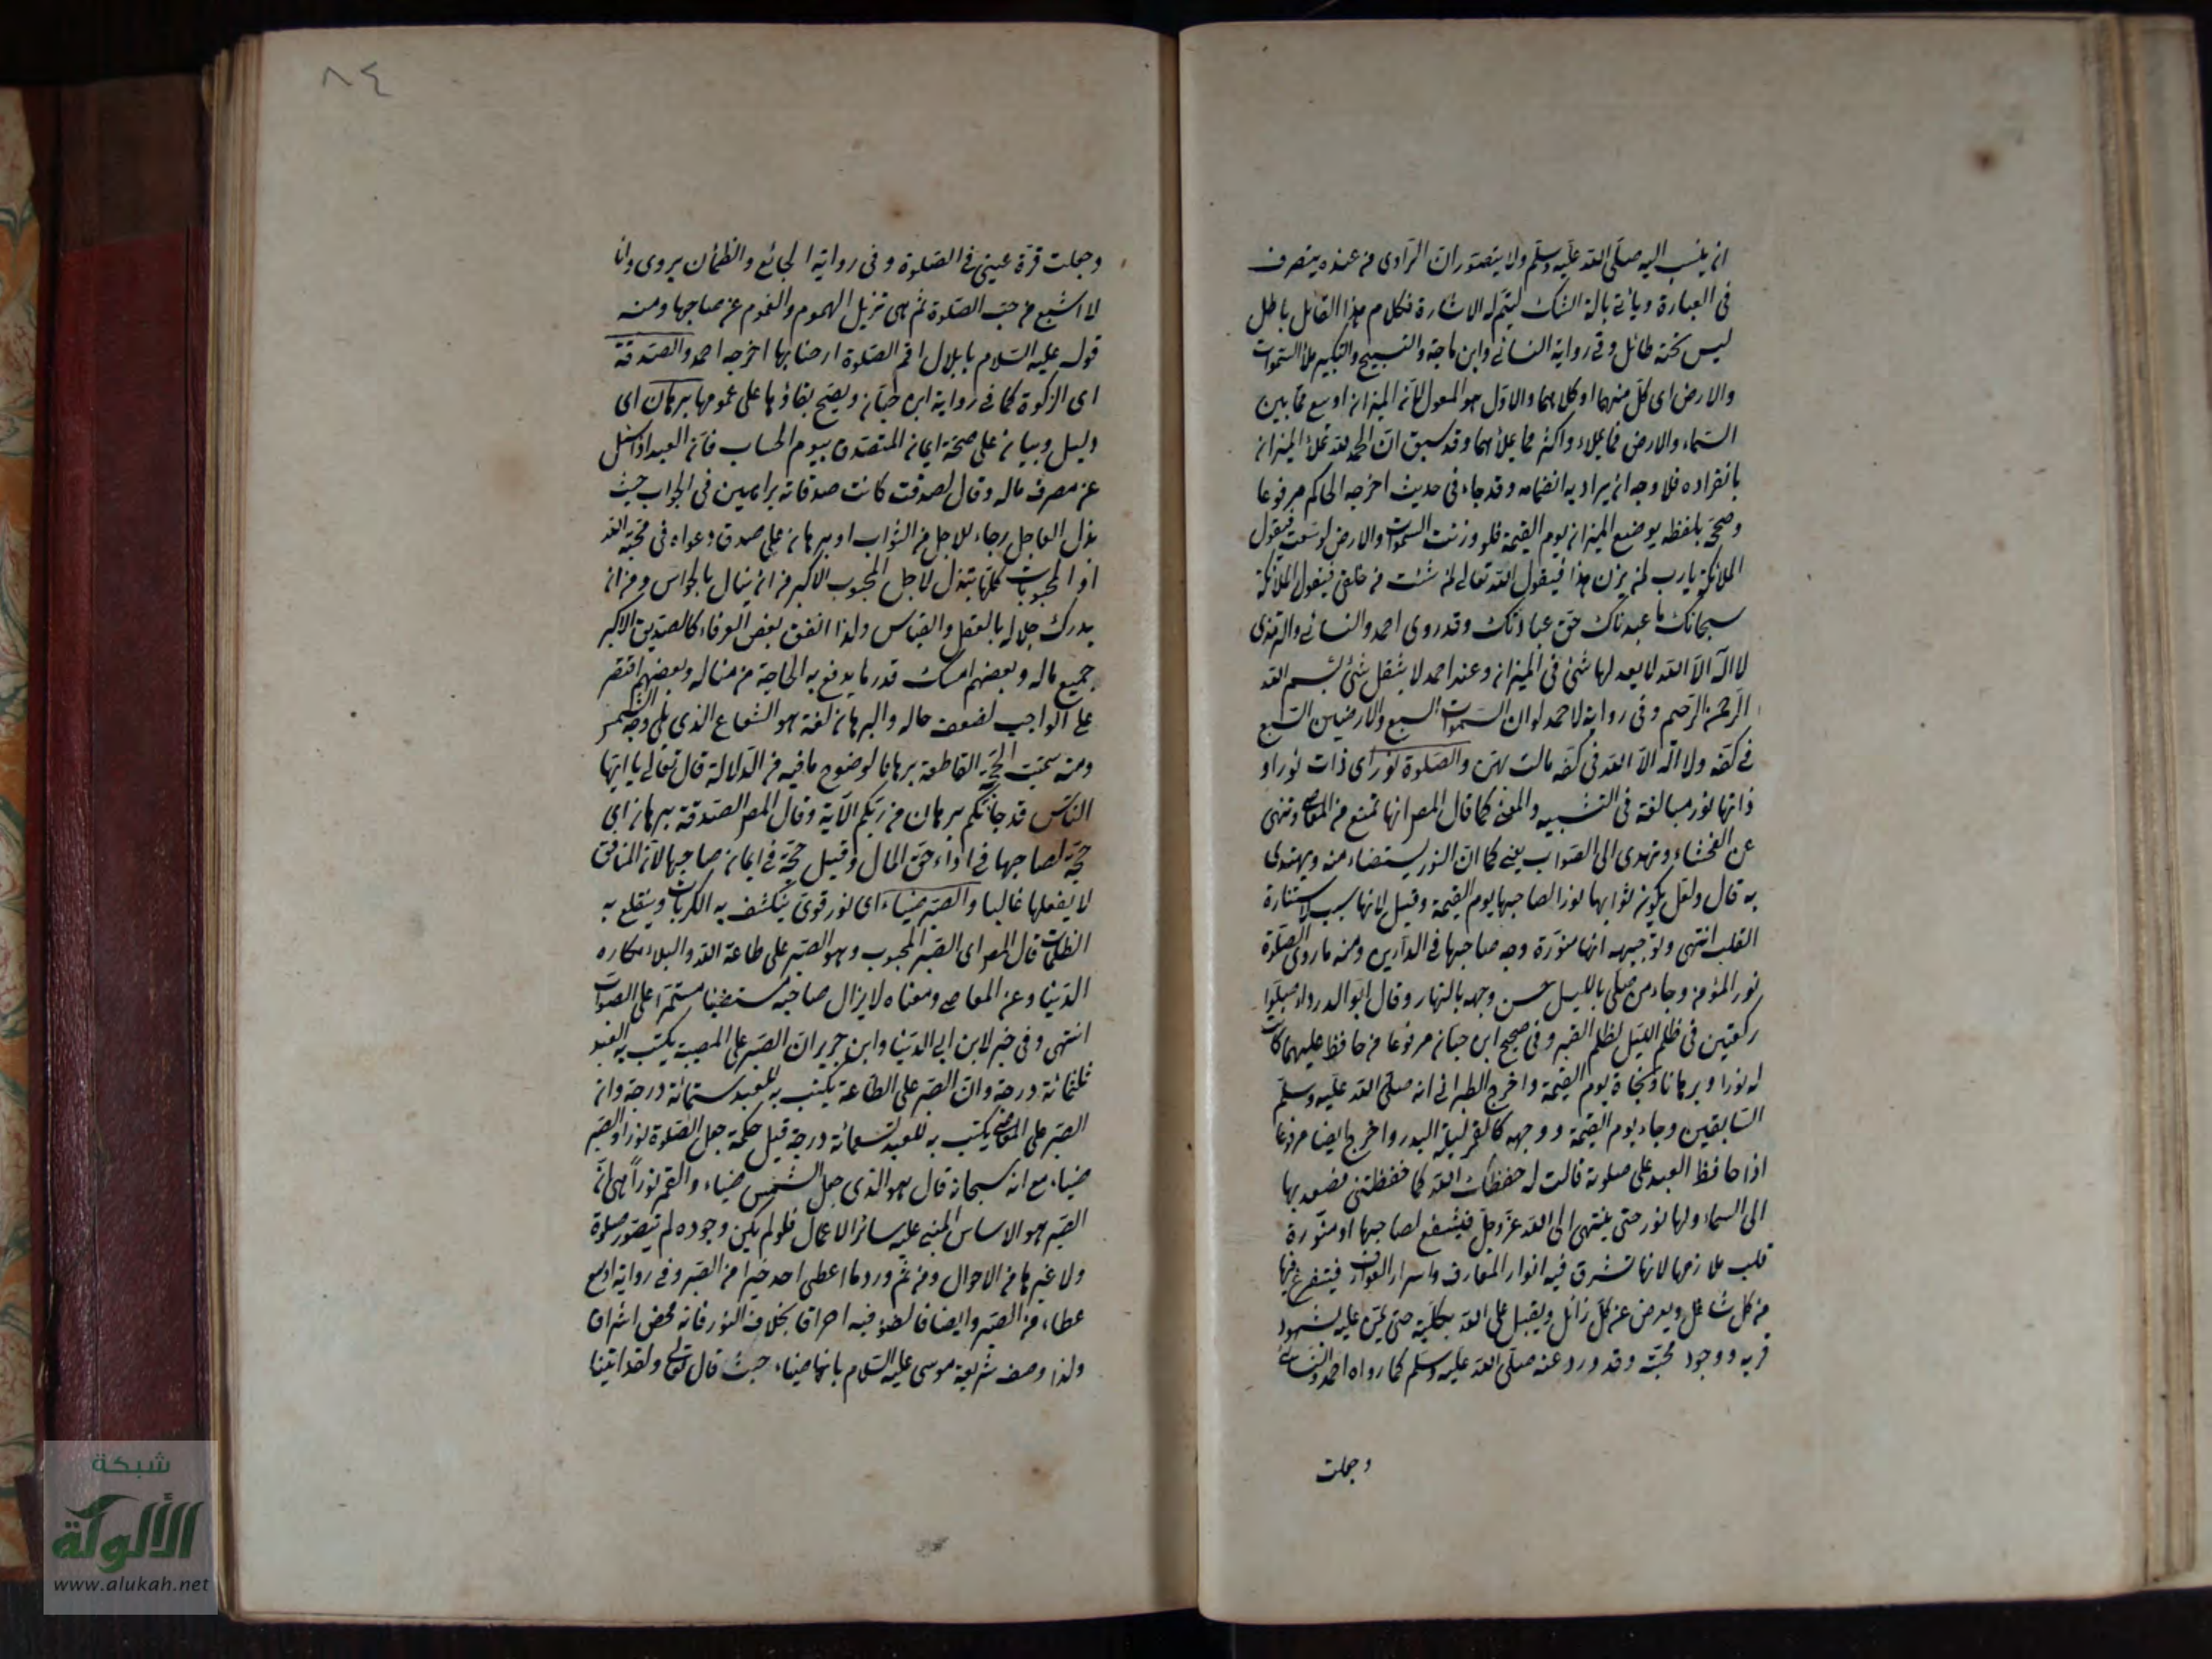 ان ينسب اليه صلى الله عليه وسلم ولا يتصور ان الراوى من عنده يتصرف
فى العبارة ويأتى بالة الشك ليتم له الاشارة فكلام هذا القائل باطل
ليس تحته طائل وفى رواية النسائى وابن ماجة والتسبيح والتكبير ملأ السموات
والارض اى كل منهما او كلاهما والاول هو المعول لان الميزان اوسع مما بين
السماء والارض فما يملاءه اكثر مما يملأهما وقد سبق ان الحمد لله تملأ الميزان
بانفراده فلا وجه ان يراد به انضمامه وقد جاء فى حديث اخرجه الحاكم مرفوعا
وصححه بلفظ يوضع الميزان يوم القيمة فلو وزنت السموات والارض لوسعت فيقول
الملائكة يا رب لمن يزن هذا فيقول الله تعالى لمن شئت من خلقى فيقول الملائكة
سبحانك ما عبدناك حق عبادتك وقد روى احمد والنسائى والترمذى
لا اله الا الله لا يعدلها شئ فى الميزان وعند احمد لا يثقل شئ بسم الله
الرحمن الرحيم وفى رواية لاحمد لو ان السموات السبع والارضين السبع
فى كفة ولا اله الا الله فى كفة مالت بهن والصلوة نور اى ذات نور او
ذاتها نور مبالغة فى التشبيه والمعنى كما قال المص انها تمنع من المعاصى وتنهى
عن الفحشاء وتهدى الى الصواب يعنى كما ان النور يستضاء منه ويهتدى
به قال ولعل يكون ثوابها نورا لصاحبها يوم القيمة وقيل لانها سبب لاستنارة
القلب انتهى وتوجيهه انها منورة وجه صاحبها فى الدارين ومنه ما روى الصلوة
نور المؤمن وجاء من صلى بالليل حسن وجهه بالنهار وقال ابو الدرداء صلوا
ركعتين فى ظلم الليل لظلم القبر وفى صحيح ابن حبان مرفوعا من حافظ عليهما كانت
له نورا وبرهانا ونجاة يوم القيمة واخرج الطبرانى انه صلى الله عليه وسلم
السابقين وجاء يوم القيمة ووجهه كالقمر ليلة البدر واخرج ايضا مرفوعا
اذا حافظ العبد على صلوته قالت له حفظك الله كما حفظتنى فصعد بها
الى السماء ولها نور حتى ينتهى الى الله عز وجل فيشفع لصاحبها او منورة
قلب ملازمها لانها تشرق فيه انوار المعارف واسرار العوارف فيتفرغ فيها
من كل شاغل ويعرض عن كل زائل ويقبل على الله بكليته حتى يمن عليه بشهود
قربه ووجود محبته وقد ورد عنه صلى الله عليه وسلم كما رواه احمد والنسائى
وجعلت
٨٤
وجعلت قرة عينى فى الصلوة وفى رواية الجائع والظمأن يروى وانا
لا اشبع من حب الصلوة ثم هى تزيل الهموم والغموم عن صاحبها ومنه
قوله عليه السلام يا بلال اقم الصلوة ارحنا بها اخرجه احمد والصدقة
اى الزكوة كما فى رواية ابن حبان ويصح بقاؤها على عمومها برهان اى
دليل وبيان على صحة ايمان المتصدق بيوم الحساب فان العبد اذا سئل
عن مصرف ماله وقال تصدقت كانت صدقاته براهين فى الجواب حيث
بذل العاجل رجاء للاجل من الثواب او برهان على صدق دعواه فى محبة الله
اذ المحبوبات كلها تبذل لاجل المحبوب الاكبر من ان ينال بالحواس ومن ان
يدرك جلاله بالعقل والقياس ولذا انفق بعض العرفاء كالصديق الاكبر
جميع ماله وبعضهم امسك قدر ما يدفع به الحاجة من مناله وبعضهم اقتصر
على الواجب لضعف حاله والبرهان لغة هو الشعاع الذى يلى وجه الشمس
ومنه سميت الحجة القاطعة برهانا لوضوح ما فيه من الدلالة قال تعالى يا ايها
الناس قد جائكم برهان من ربكم الاية وقال المص الصدقة برهان اى
حجة لصاحبها فى اداء حق المال وقيل حجة فى ايمان صاحبها لان المنافق
لا يفعلها غالبا والصبر ضياء اى نور قوى ينكشف به الكربات وينقلع به
الظلمات قال المص اى الصبر المحبوب وهو الصبر على طاعة الله والبلاء ومكاره
الدنيا وعن المعاصى ومعناه لا يزال صاحبه مستضيئا مستمرا على الصواب
انتهى وفى خبر لابن ابى الدنيا وابن جرير ان الصبر على المصيبة يكتب به للعبد
ثلثمائة درجة وان الصبر على الطاعة يكتب به للعبد ستمائة درجة وان
الصبر على المعاصى يكتب به للعبد تسعمائة درجة قيل حكمة جعل الصلوة نورا والصبر
ضياء مع انه سبحانه قال هو الذى جعل الشمس ضياء والقمر نورا هى ان
الصبر هو الاساس المبنى عليه سائر الاعمال فلو لم يكن وجوده لم تتصور صلوة
ولا غيرها من الاحوال ومن ثم ورد ما اعطى احد خيرا من الصبر وفى رواية اوسع
عطاء من الصبر وايضا فالضوء فيه احراق بخلاف النور فانه محض اشراق
ولذا وصف شريعة موسى عليه السلام بانها ضياء حيث قال تعالى ولقد اتينا
شبكة
الألوكة
www.alukah.net